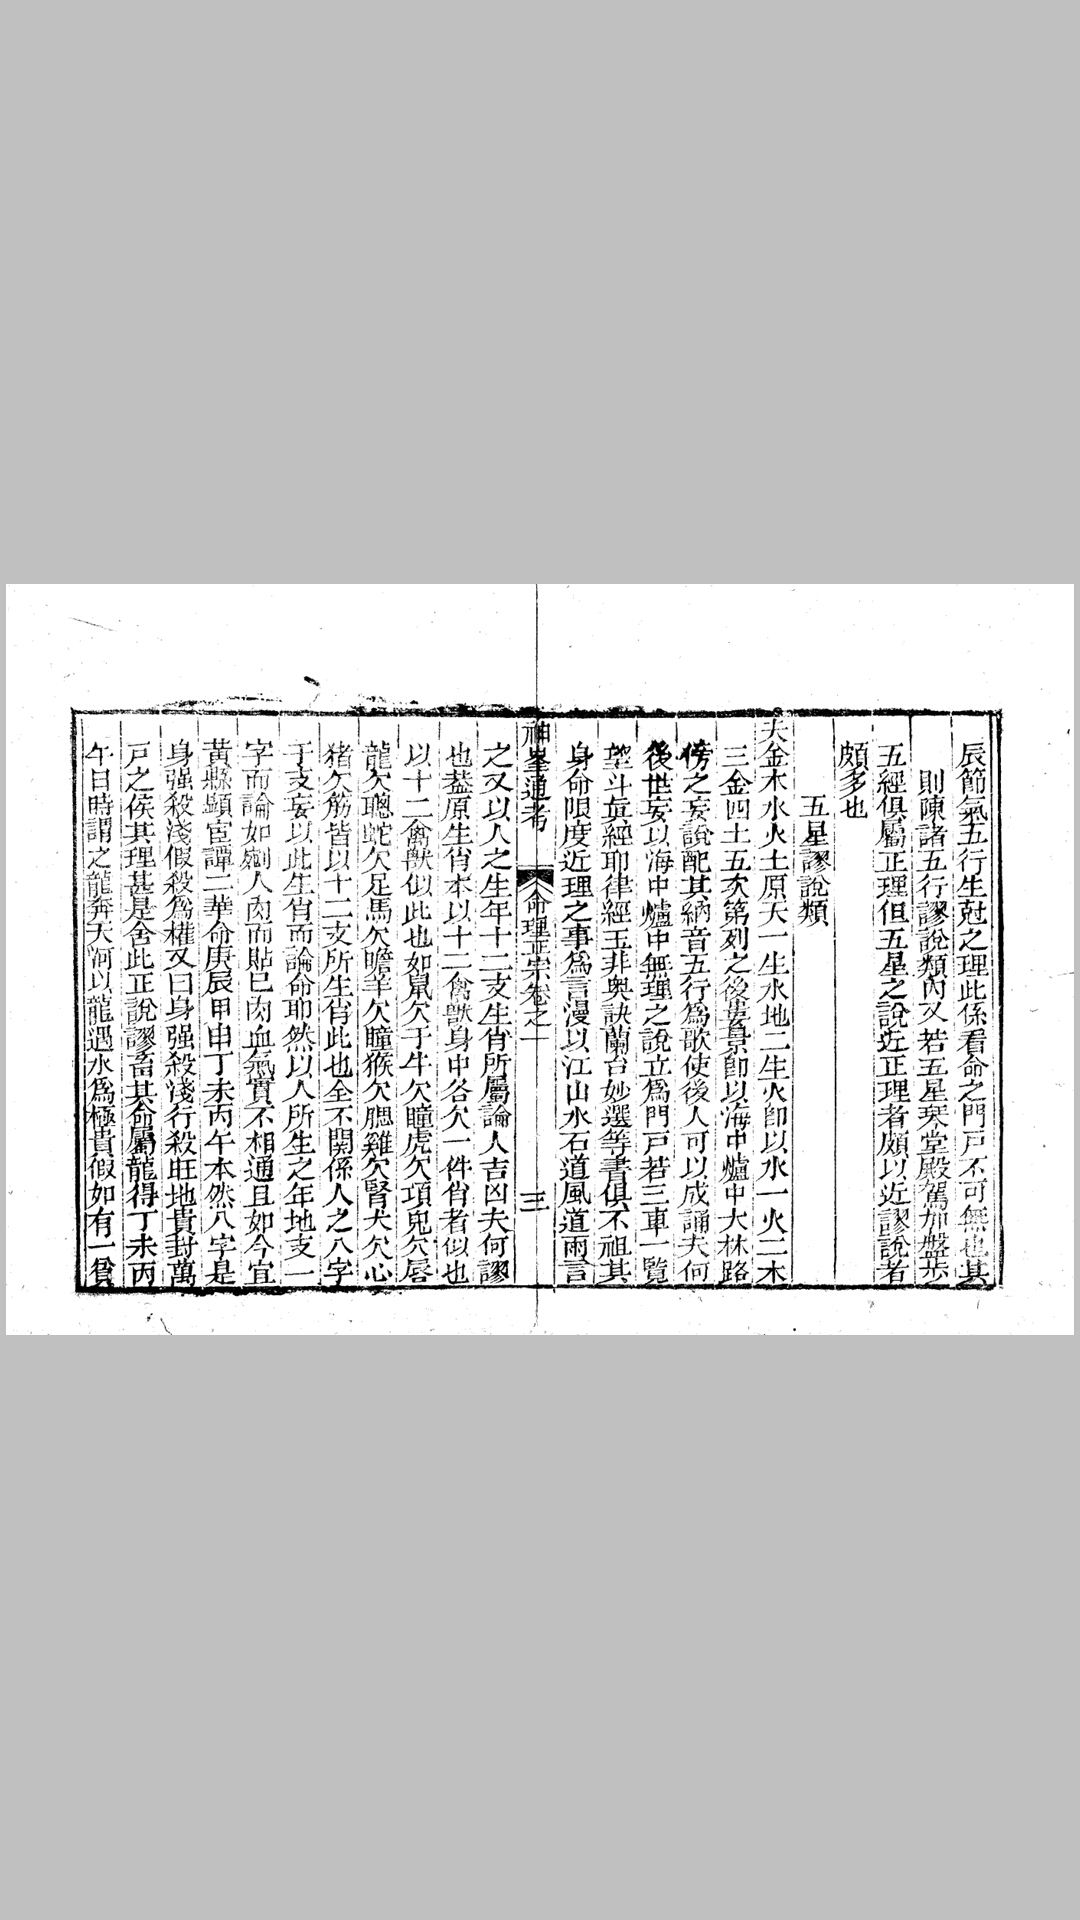 辰節氣五行生尅之理此係看命之門戸不可無也其
則陳諸五行謬說類內又若五星琴堂殿駕加盤步
五經俱屬正理但五星之說近正理者頗以近謬說者
頗多也
五星謬說類
夫金木水火土原天一生水地二生火卽以水一火二木
三金四土五次第列之後婁景卽以海中爐中大林路
傍之妄說配其納音五行為歌使後人可以成誦夫何
後世妄以海中爐中無理之說立為門戸若三車一覽
望斗眞經耶律經玉井奧訣蘭台妙選等書俱不祖其
身命限度近理之事為言漫以江山水石道風道雨言
神峯通考 命理正宗卷之一 三
之又以人之生年十二支生肖所屬論人吉凶夫何謬
也葢原生肖本以十二禽獸身中各欠一件肖者似也
以十二禽獸似此也如鼠欠牙牛欠瞳虎欠項兎欠唇
龍欠聰蛇欠足馬欠膽羊欠瞳猴欠腮雞欠腎犬欠心
猪欠筋皆以十二支所生肖此也全不関係人之八字
干支妄以此生肖而論命耶然以人所生之年地支一
字而論如剜人肉而貼已肉血氣實不相通且如今宜
黃縣顯宦譚二華命庚辰甲申丁未丙午本然八字是
身强殺淺假殺為權又曰身强殺淺行殺旺地貴封萬
戸之侯其理甚是舍此正說謬畜其命屬龍得丁未丙
午日時謂之龍奔天河以龍遇水為極貴假如有一貧